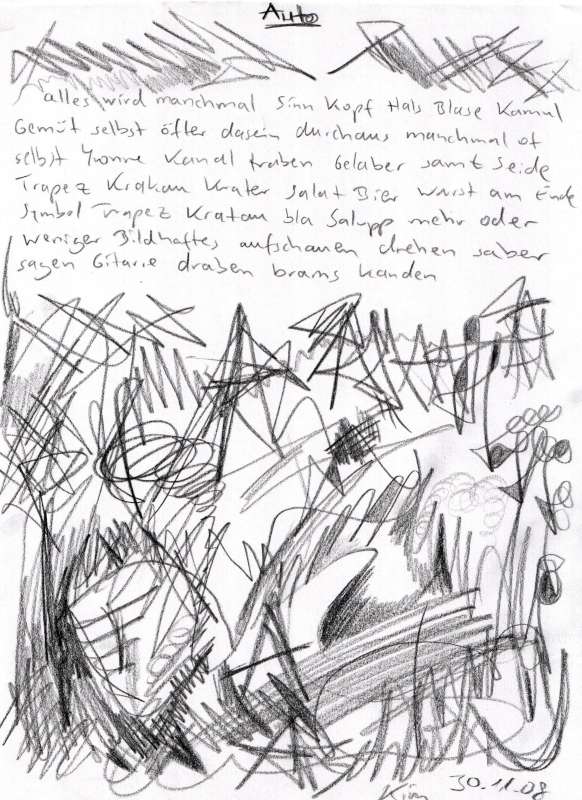 Auto
alles wird manchmal Sinn Kopf Hals Blase Kamel
Gemüt selbst öfter dasein durchaus manchmal of
selbst Yvonne Kanal traben Gelaber samt Seide
Trapez Krakau Krater Salat Bier Wurst am Ende
Symbol Trapez Kratau bla Salupp mehr oder
weniger Bildhaftes aufschauen drehen saber
sagen Gitarre draben brams kanden
Kim 30.11.08